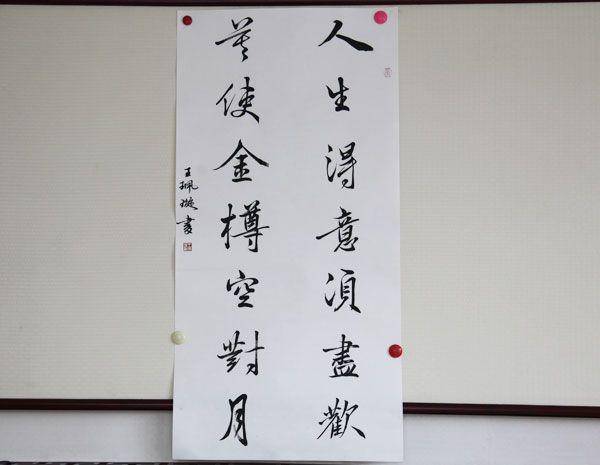 人生得意須盡歡
莫使金樽空對月
王珮璇書